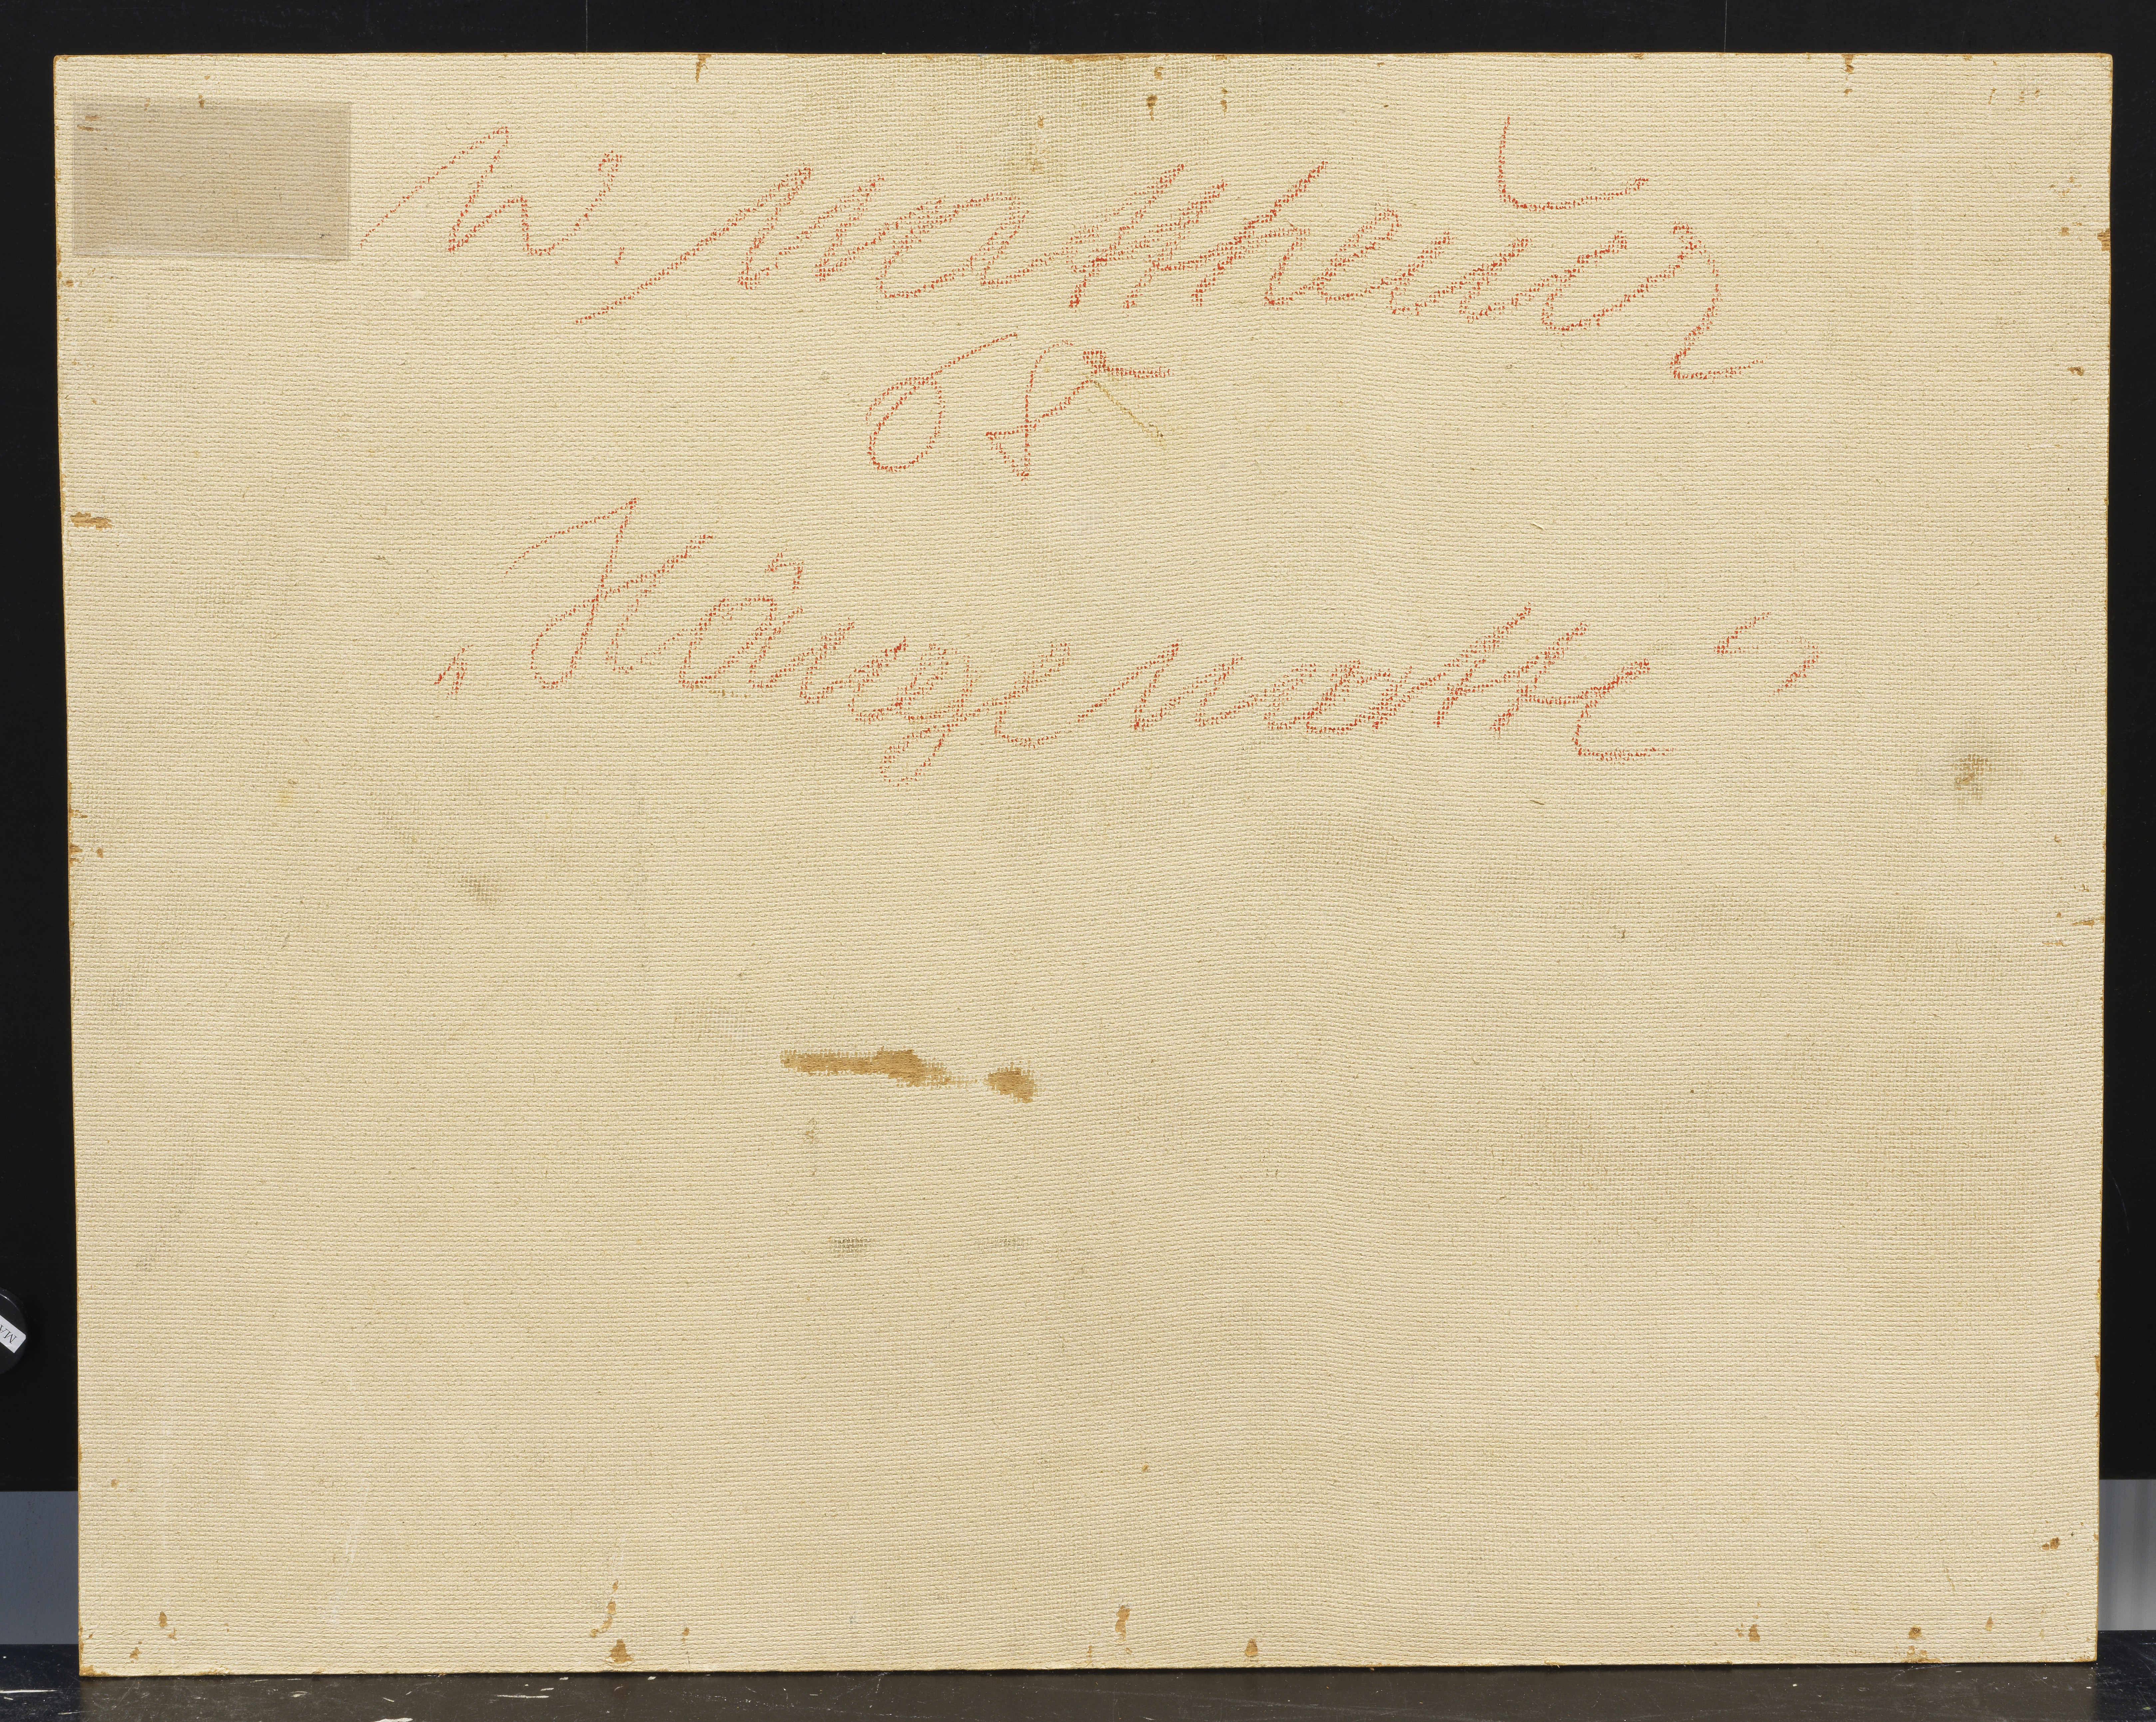 W. Mattheuer
„Hängematte“